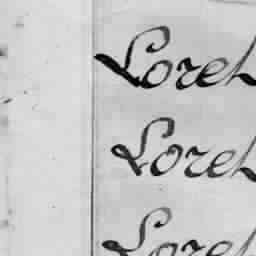 Loret
Loret
Loret